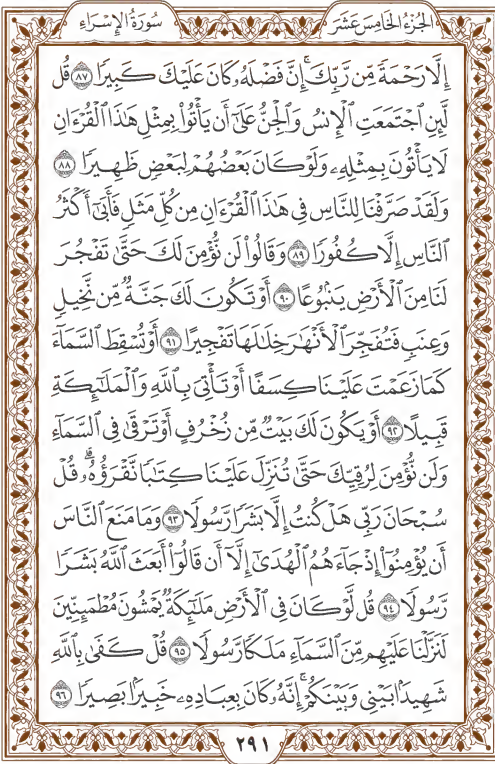 الجُزْءُ الخَامِسَ عَشَرَ
سُورَةُ الإِسْرَاءِ
إِلَّا رَحْمَةً مِّن رَّبِّكَ ۚ إِنَّ فَضْلَهُۥ كَانَ عَلَيْكَ كَبِيرًا ٨٧ قُل
لَّئِنِ ٱجْتَمَعَتِ ٱلْإِنسُ وَٱلْجِنُّ عَلَىٰٓ أَن يَأْتُوا۟ بِمِثْلِ هَٰذَا ٱلْقُرْءَانِ
لَا يَأْتُونَ بِمِثْلِهِۦ وَلَوْ كَانَ بَعْضُهُمْ لِبَعْضٍ ظَهِيرًا ٨٨
وَلَقَدْ صَرَّفْنَا لِلنَّاسِ فِى هَٰذَا ٱلْقُرْءَانِ مِن كُلِّ مَثَلٍ فَأَبَىٰٓ أَكْثَرُ
ٱلنَّاسِ إِلَّا كُفُورًا ٨٩ وَقَالُوا۟ لَن نُّؤْمِنَ لَكَ حَتَّىٰ تَفْجُرَ
لَنَا مِنَ ٱلْأَرْضِ يَنۢبُوعًا ٩٠ أَوْ تَكُونَ لَكَ جَنَّةٌ مِّن نَّخِيلٍ
وَعِنَبٍ فَتُفَجِّرَ ٱلْأَنْهَٰرَ خِلَٰلَهَا تَفْجِيرًا ٩١ أَوْ تُسْقِطَ ٱلسَّمَآءَ
كَمَا زَعَمْتَ عَلَيْنَا كِسَفًا أَوْ تَأْتِىَ بِٱللَّهِ وَٱلْمَلَٰٓئِكَةِ
قَبِيلًا ٩٢ أَوْ يَكُونَ لَكَ بَيْتٌ مِّن زُخْرُفٍ أَوْ تَرْقَىٰ فِى ٱلسَّمَآءِ
وَلَن نُّؤْمِنَ لِرُقِيِّكَ حَتَّىٰ تُنَزِّلَ عَلَيْنَا كِتَٰبًا نَّقْرَؤُهُۥ ۗ قُلْ
سُبْحَانَ رَبِّى هَلْ كُنتُ إِلَّا بَشَرًا رَّسُولًا ٩٣ وَمَا مَنَعَ ٱلنَّاسَ
أَن يُؤْمِنُوٓا۟ إِذْ جَآءَهُمُ ٱلْهُدَىٰٓ إِلَّآ أَن قَالُوٓا۟ أَبَعَثَ ٱللَّهُ بَشَرًا
رَّسُولًا ٩٤ قُل لَّوْ كَانَ فِى ٱلْأَرْضِ مَلَٰٓئِكَةٌ يَمْشُونَ مُطْمَئِنِّينَ
لَنَزَّلْنَا عَلَيْهِم مِّنَ ٱلسَّمَآءِ مَلَكًا رَّسُولًا ٩٥ قُلْ كَفَىٰ بِٱللَّهِ
شَهِيدًۢا بَيْنِى وَبَيْنَكُمْ ۚ إِنَّهُۥ كَانَ بِعِبَادِهِۦ خَبِيرًۢا بَصِيرًا ٩٦
٢٩١